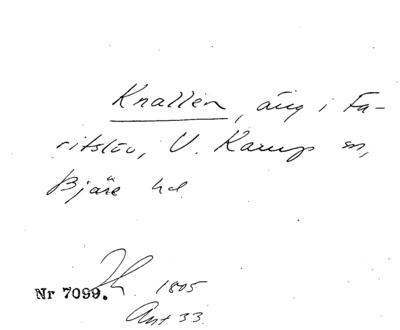 Knallen, äng i Fa-
ritslöv, V. Karup sn,
Bjäre hd
Nr 7099. 1805
Ant 33.